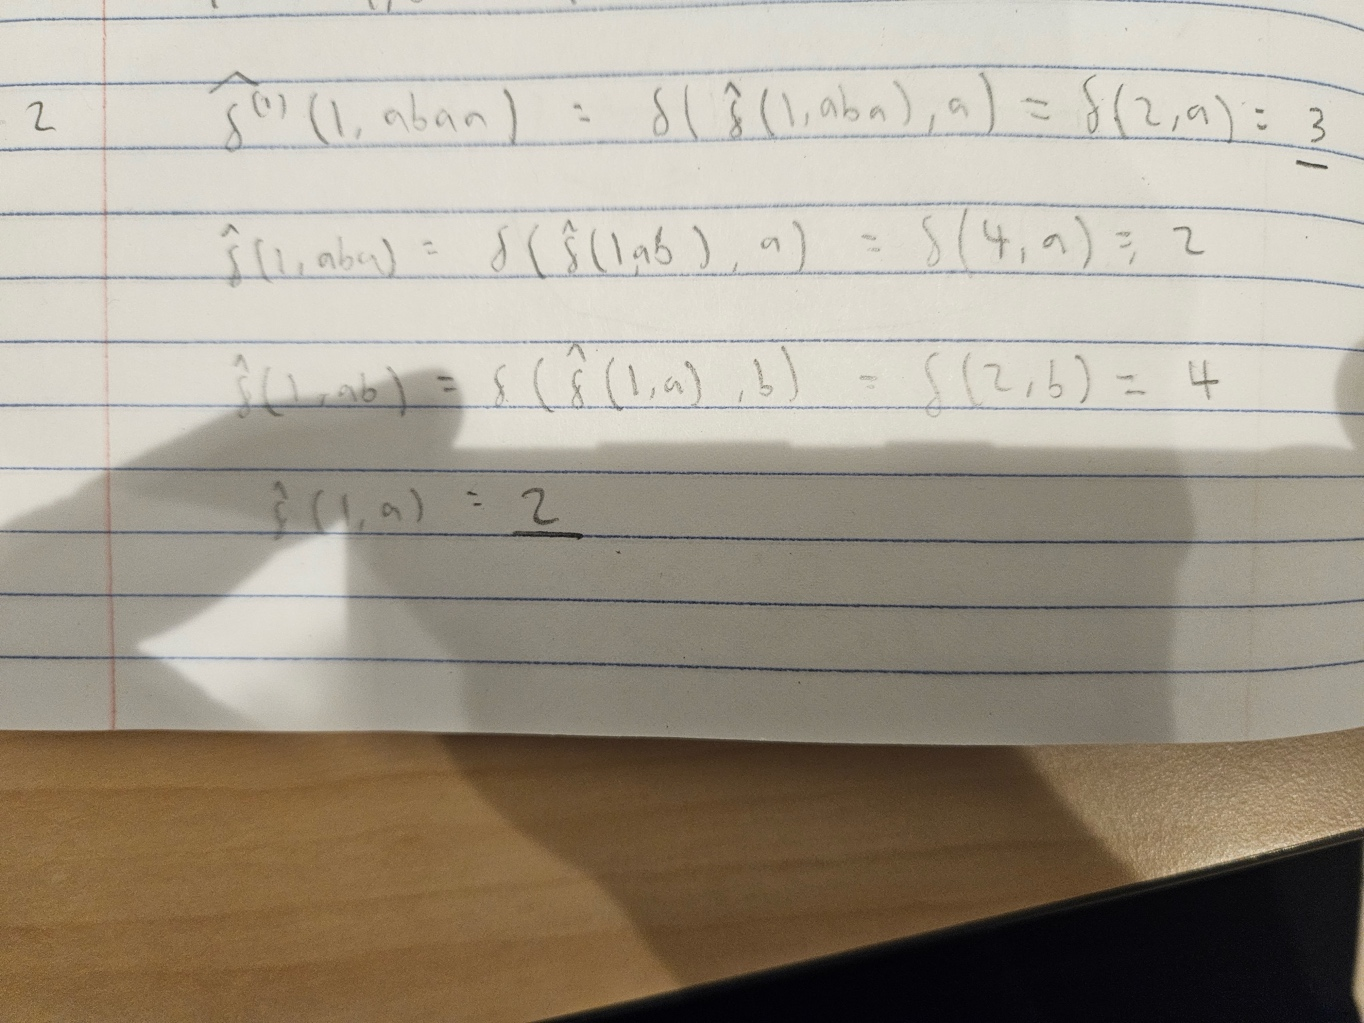 2 δ̂⁽¹⁾(1, abaa) = δ(δ̂(1,aba), a) = δ(2,a) = 3
δ̂(1, aba) = δ(δ̂(1,ab), a) = δ(4, a) = 2
δ̂(1, ab) = δ(δ̂(1,a), b) = δ(2, b) = 4
δ̂(1, a) = 2